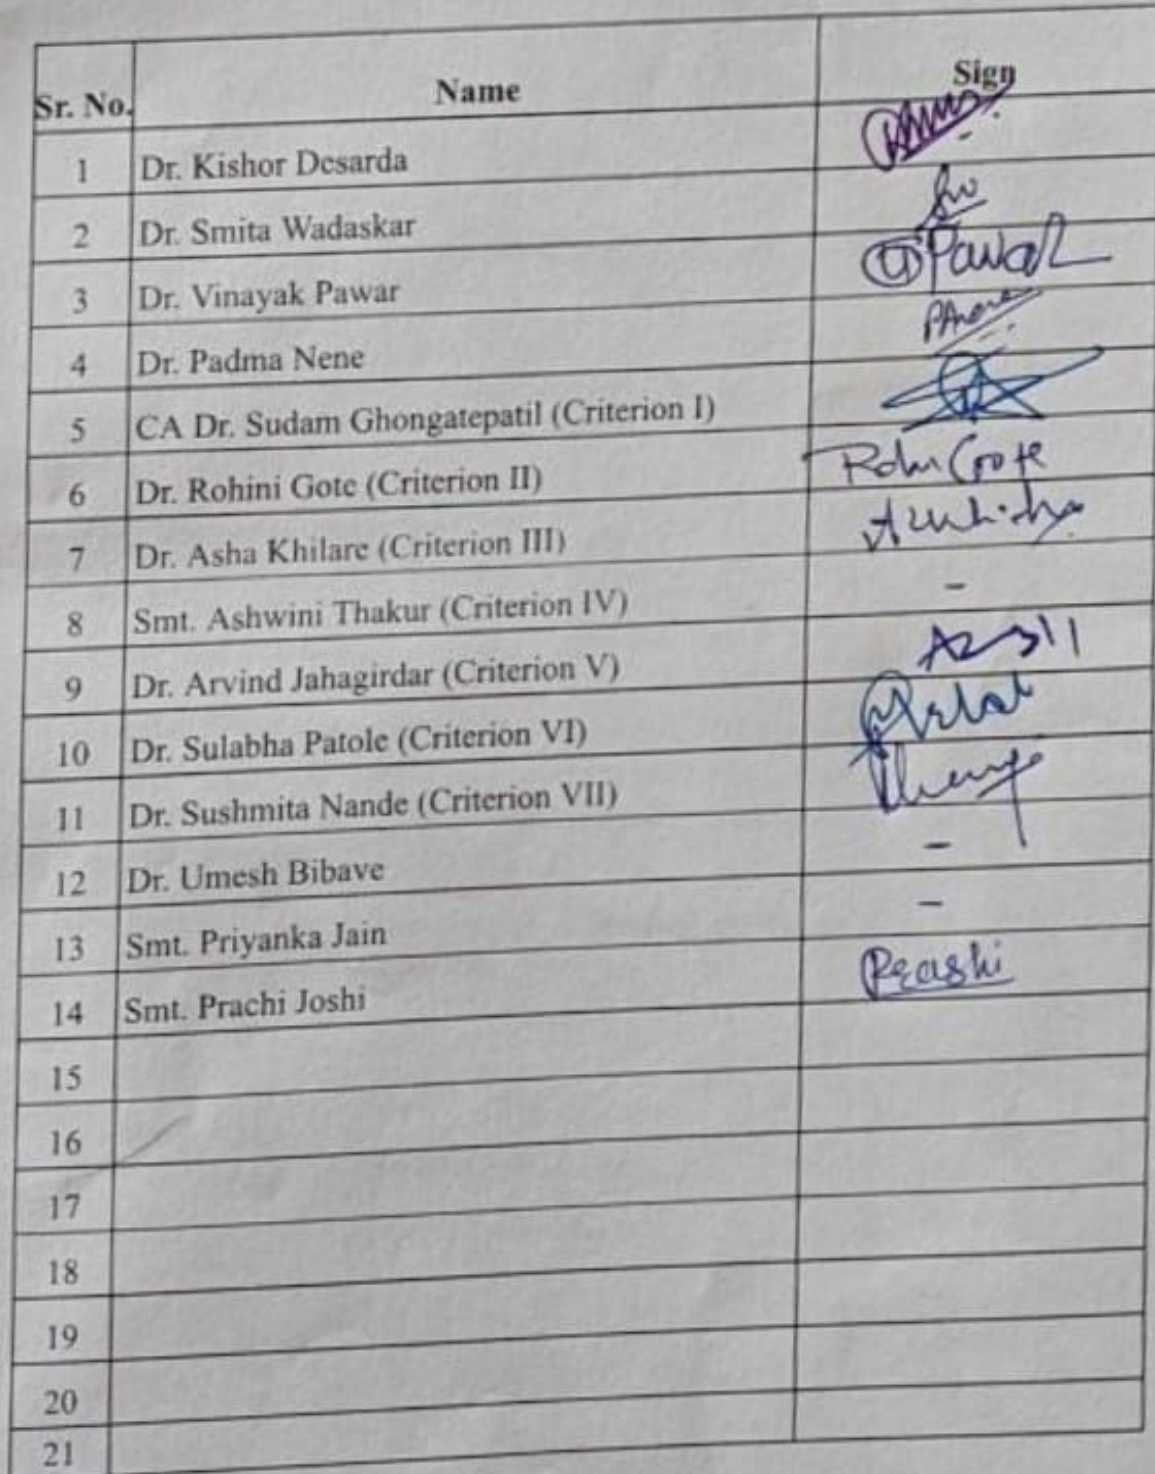 Sr. No. Name Sign
1 Dr. Kishor Desarda
2 Dr. Smita Wadaskar
3 Dr. Vinayak Pawar Pawar
4 Dr. Padma Nene
5 CA Dr. Sudam Ghongatepatil (Criterion I)
6 Dr. Rohini Gote (Criterion II) Gote
7 Dr. Asha Khilare (Criterion III)
8 Smt. Ashwini Thakur (Criterion IV) -
9 Dr. Arvind Jahagirdar (Criterion V)
10 Dr. Sulabha Patole (Criterion VI)
11 Dr. Sushmita Nande (Criterion VII)
12 Dr. Umesh Bibave -
13 Smt. Priyanka Jain -
14 Smt. Prachi Joshi
15
16
17
18
19
20
21